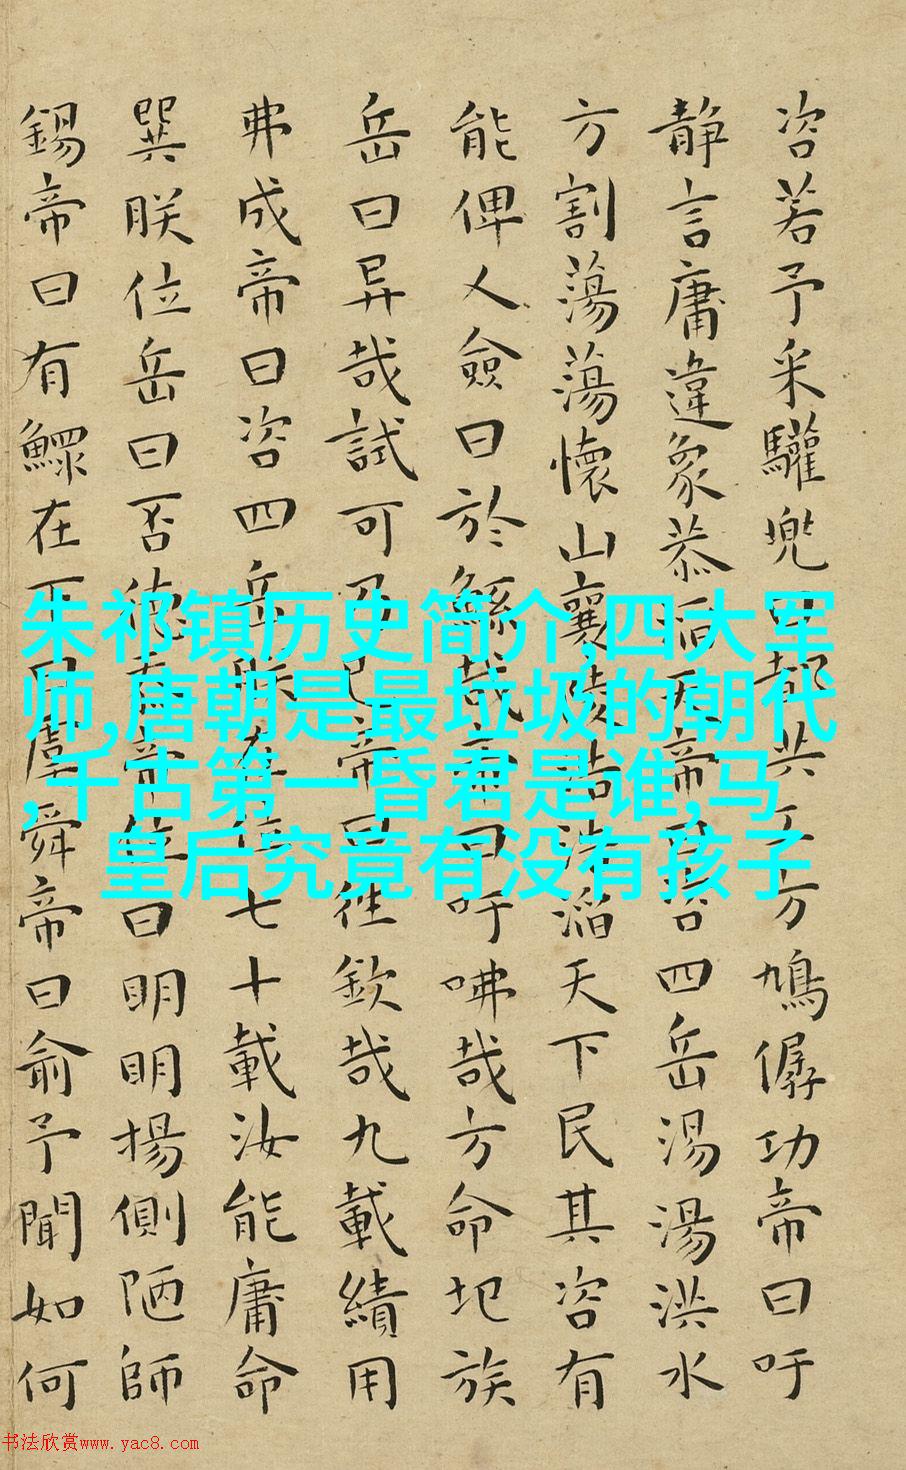 咨若予采驩兜曰都共工方鳩僝功帝曰吁
静言庸違象恭滔天帝曰咨四岳湯湯洪水
方割蕩蕩懷山襄陵浩浩滔天下民其咨有
能俾乂僉曰於鯀哉帝曰吁咈哉方命圮族
岳曰异哉試可乃已帝曰往欽哉九載績用
弗成帝曰咨四岳朕在位七十載汝能庸命
巽朕位岳曰否德忝帝位曰明明揚側陋師
錫帝曰有鰥在下曰虞舜帝曰俞予聞如何
朱祁镇历史简介,四大军
师,唐朝是最垃圾的朝代
,千古第一昏君是谁,马
皇后究竟有没有孩子
书法欣赏www.yac8.com